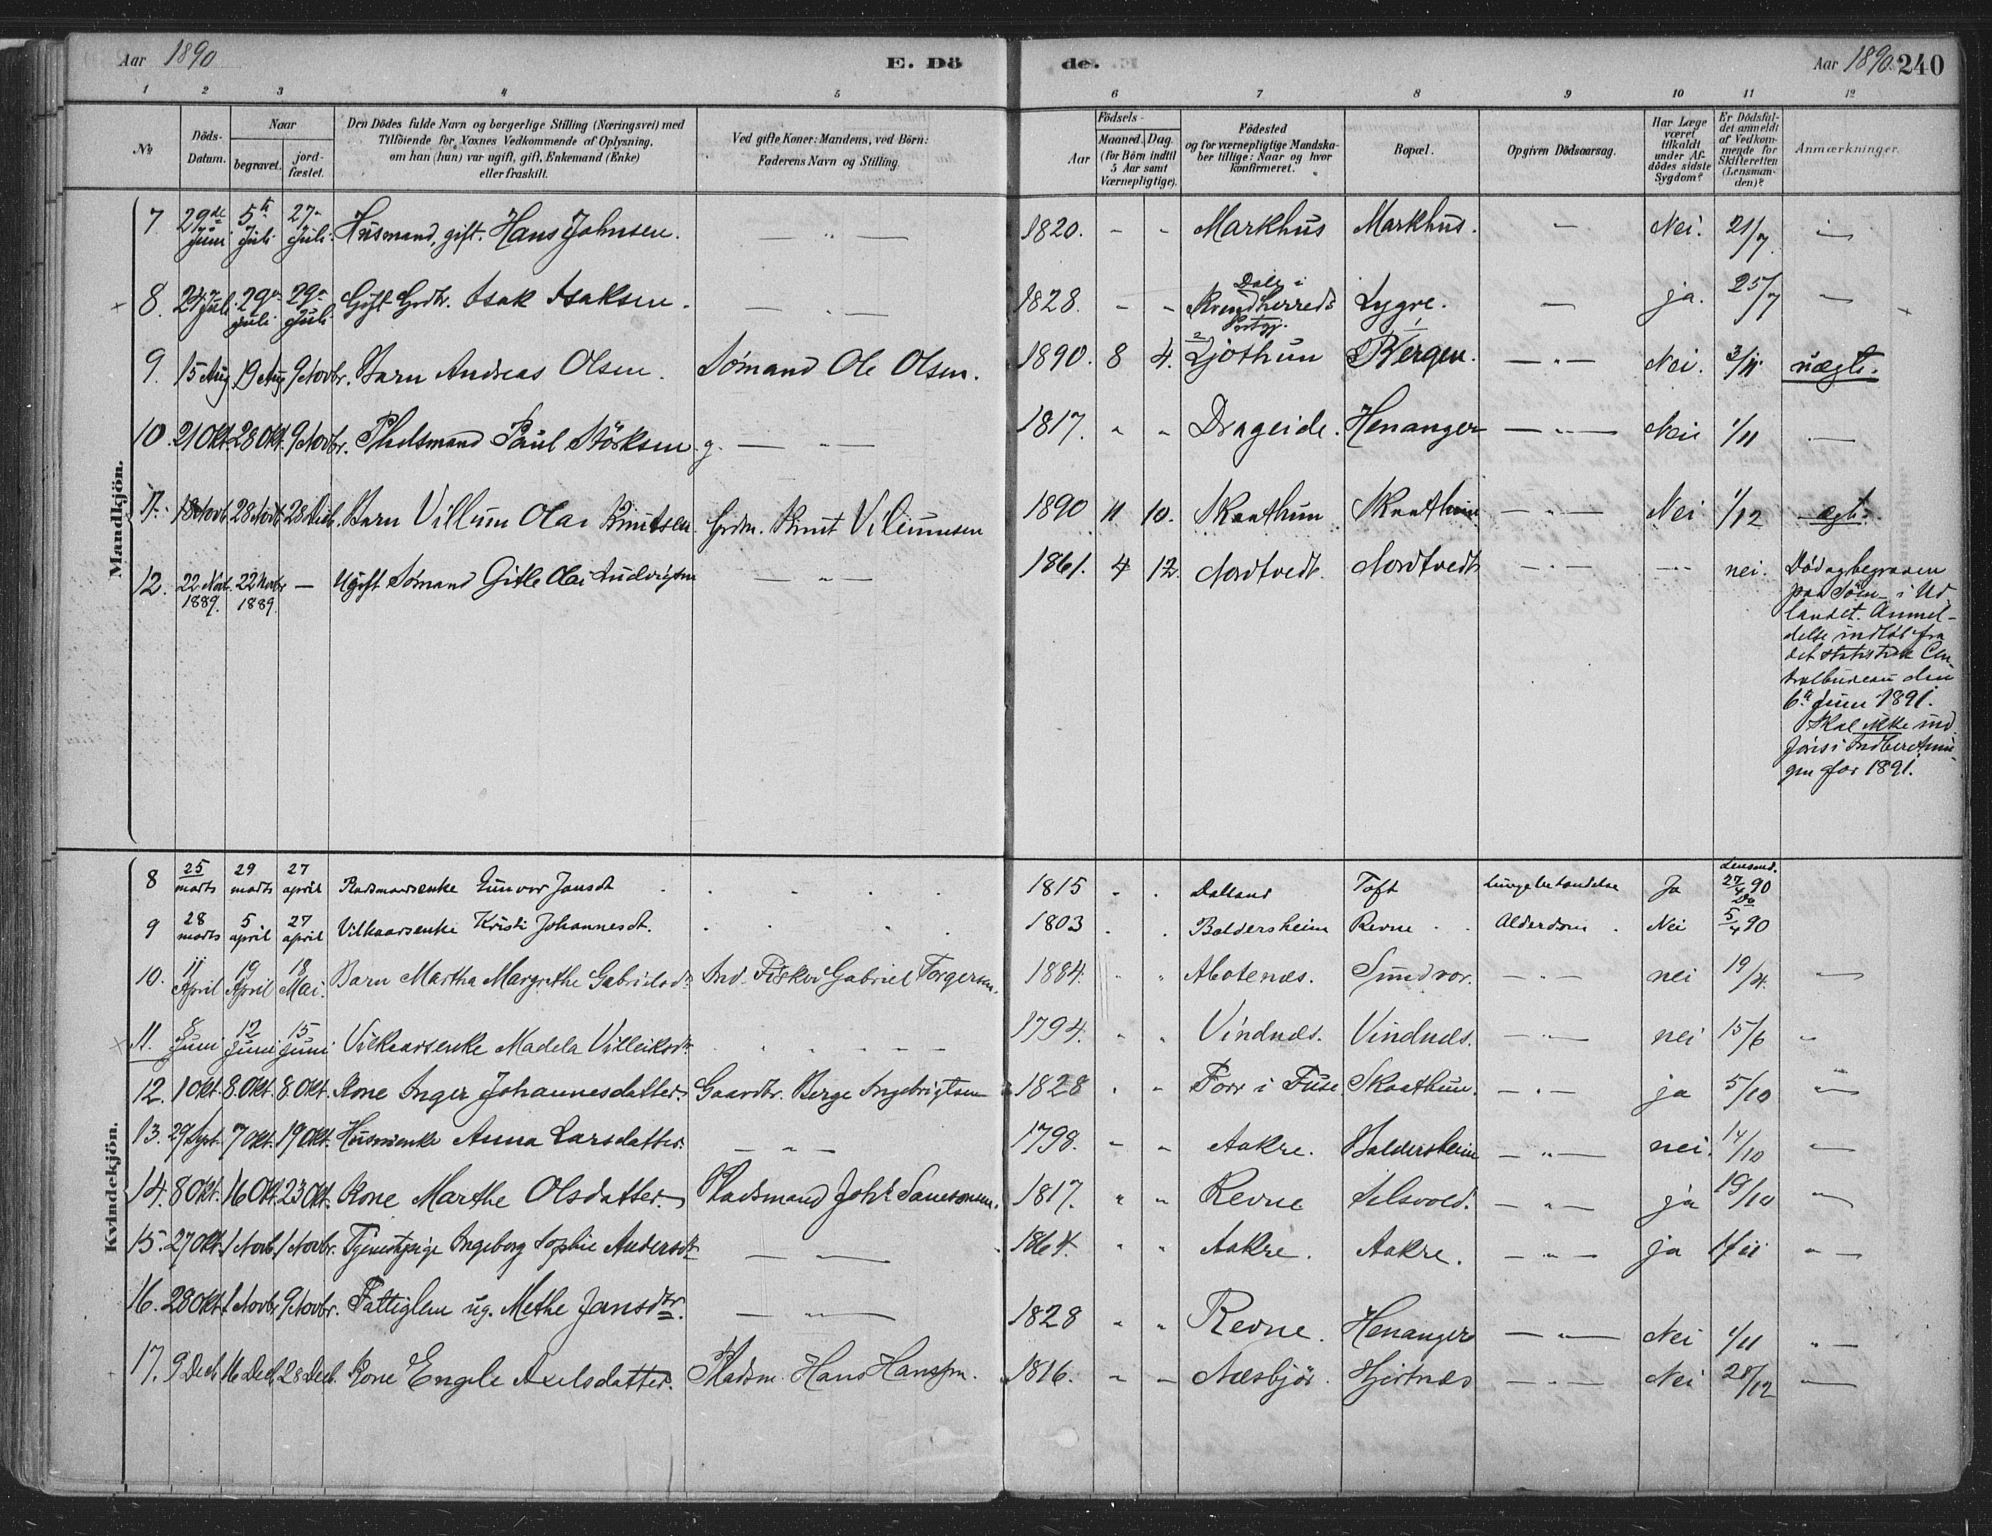 Aar 1890
E. Dö
de.
Aar 1890. 240
1 2 3 4 5 6 7 8 9 10 11 12
№
Döds-
Datum.
Naar
begravet.
jord-
fæstet.
Den Dödes fulde Navn og borgerlige Stilling (Næringsvei) med
Tilföiende for Voxnes Vedkommende af Oplysning,
om han (hun) var ugift, gift, Enkemand (Enke)
eller fraskilt.
Ved gifte Koner: Mandens, ved Börn:
Faderens Navn og Stilling.
Födsels-
Aar
Maaned. Dag.
(for Börn indtil
5 Aar samt
Værnepligtige).
Födested
og for værnepligtige Mandska-
ber tillige: Naar og hvor
konfirmeret.
Bopæl.
Opgiven Dödsaarsag.
Har Læge
været
tilkaldt
under Af-
dödes sidste
Sygdom?
Er Dödsfal-
det anmeldt
af Vedkom-
mende for
Skifteretten
(Lensman-
den)?
Anmærkninger.
Mandkjön.
7 29de Juni 5te Juli 27 Juli Husmand, gift. Hans Johnsen. — " — 1820. - - Markhus Markhus. — Nei. 21/7 —
8. 24 Juli 29 Juli 29 Juli Gift Grdbr. Isak Isaksen. — " — 1828. - - Kvindherreds Lygre. — ja. 25/7 —
9. 15 Aug 19 Aug 9 Novbr. Barn Andreas Olsen. Sömand Ole Olsen. 1890. 8 4. Ljothun Bergen. — " — Nei. 3/11 uægte.
10. 21 Okt. 28 Okt. 9 Novbr. Pladsmand Paul Störksen g. — " — 1817. " " Drageide. Henanger — " — Nei 1/11 —
11. 18 Novb. 28 Novb. 28 Decb. Barn Villum Olai Knutsen. Grdm. Knut Villumsen 1890 11 10. Skaathun Skaathun — " — Nei 1/12 ægte.
12. 22 Novb. 1889. 22 Novbr 1889. — Ugift Sömand Gitle Olai Ludvigsen — " — 1861. 4 12. Nordtvedt. Nordtvedt — " — — nei. Död og begraven
paa Söen i Ud-
landet. Anmel-
delse indlöb fra
det statistiske Cen-
tralbureau den
6te Juni 1891.
Skal ikke ind-
föres i Indberetnin-
gen for 1891.
Kvindekjön.
8 25 marts 29 marts 27 april Pladsmandsenke Gunvor Jansdt . . . 1815 " . Dalland Toft Lungebetændelse Ja Lensmd. 27/4 90
9 28 marts 5 april 27 april Vilkaarsenke Kristi Johannesdt. . . . 1803 . . Boldersheim Revne Alderdom Nei Do 5/4 90
10. 11 April 19 April 18 Mai. Barn Martha Margrethe Gabrielsdr Ind. Fisker Gabriel Torgersen. 1884. " " Abotenæs. Sundvor. — " — nei 19/4. —
11. 8 Juni 12 Juni 15 Juni Vilkaarsenke Madela Villeiksdtr — 1794. " " Vindnæs. Vindnæs. — " — nei 15/6 "
12. 1 Okt. 8. Okt. 8 Okt. Kone Inger Johannesdatter. Gaardbr. Berge Ingebrigtsen 1828 " " Torr i Fuse Skaathun. — " — ja 5/10 —
13. 29 Sept. 7 Okt. 19 Okt. Husmenke Anna Larsdatter. — " — 1798. " " Aakre. Baldersheim — " — nei. 14/10 —
14. 8 Okt. 16 Okt. 23 Okt. Kone Marthe Olsdatter. Pladsmand Joh. Samsonsen. 1817. " " Revne Silsvold. — " — ja 19/10 —
15. 27 Okt. 1 Novb. 1 Novbr. Tjenestpige Ingeborg Sophie Andersdt — 1864. " " Aakre. Aakre. — " — ja 1/11 " —
16. 28 Okt. 1 Novbr 9 Novbr. Fattiglem ug. Methe Jansdtr. — " — 1828 " " Revne. Henanger — " — Nei 1/11 " —
17. 9 Decb. 16 Decb. 28 Decb. Kone Engele Axelsdatter. Pladsm. Hans Hansen. 1816. " " Næsbjör. Hjertnæs — " — Nei 28/12 —